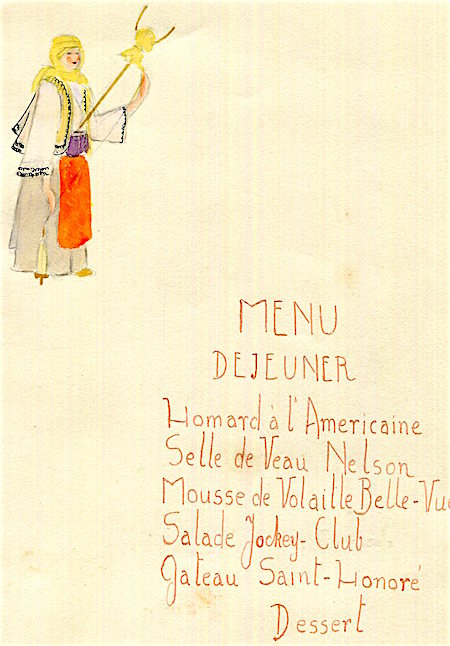 MENU
DEJEUNER
Homard à l'Americaine
Selle de Veau Nelson
Mousse de Volaille Belle-Vue
Salade Jockey-Club
Gateau Saint-Honoré
Dessert